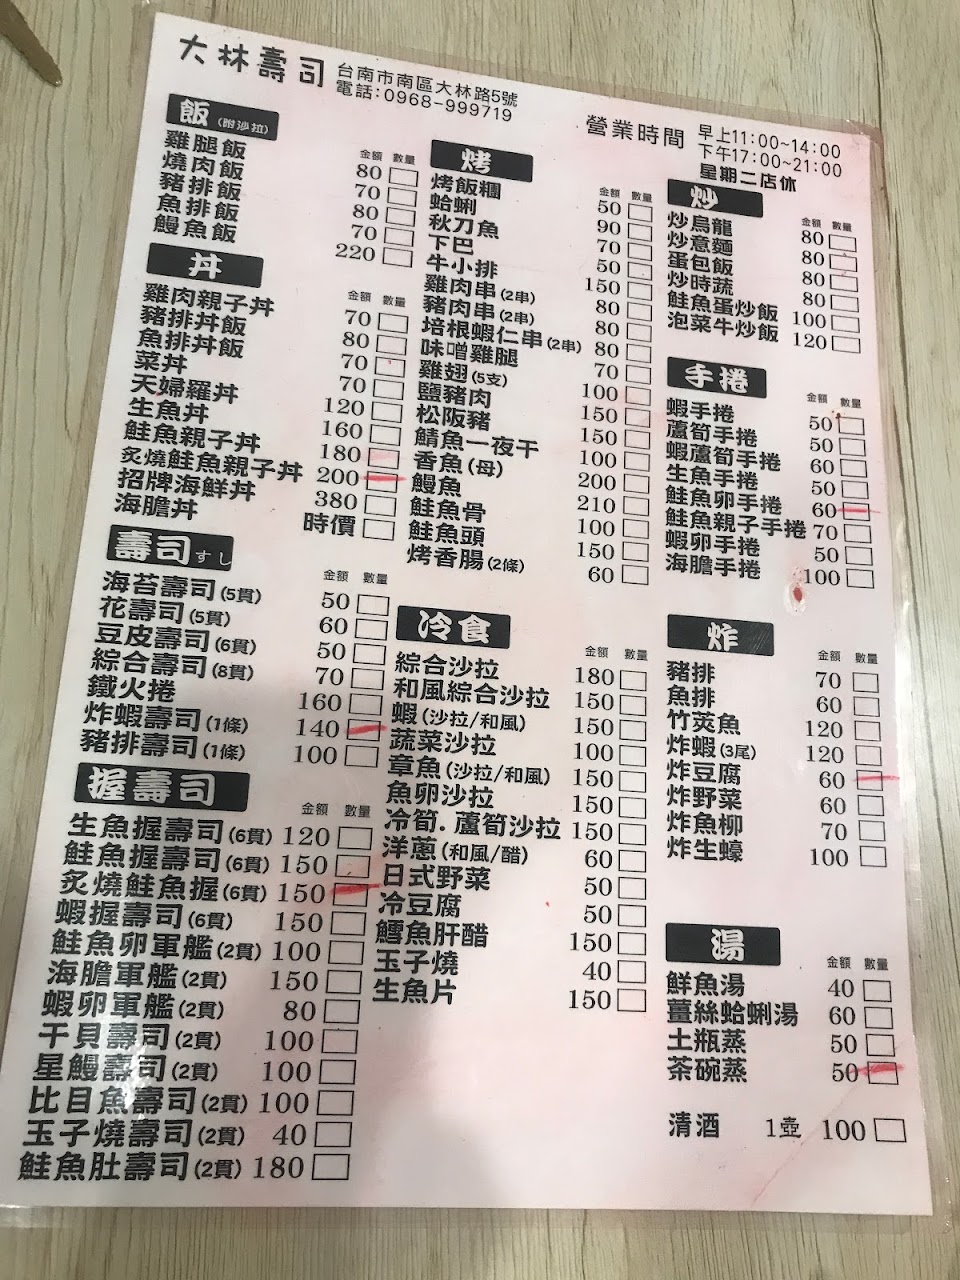 大林壽司
台南市南區大林路5號
電話:0968-999719
營業時間 早上11:00~14:00
下午17:00~21:00
星期二店休
飯(附沙拉)
金額 數量
雞腿飯 80
燒肉飯 70
豬排飯 80
魚排飯 70
鰻魚飯 220
丼
金額 數量
雞肉親子丼 70
豬排丼飯 80
魚排丼飯 70
菜丼 70
天婦羅丼 120
生魚丼 160
鮭魚親子丼 180
炙燒鮭魚親子丼 200
招牌海鮮丼 380
海膽丼 時價
壽司すし
金額 數量
海苔壽司(5貫) 50
花壽司(5貫) 60
豆皮壽司(6貫) 50
綜合壽司(8貫) 70
鐵火捲 160
炸蝦壽司(1條) 140
豬排壽司(1條) 100
握壽司
金額 數量
生魚握壽司(6貫) 120
鮭魚握壽司(6貫) 150
炙燒鮭魚握(6貫) 150
蝦握壽司(6貫) 150
鮭魚卵軍艦(2貫) 100
海膽軍艦(2貫) 150
蝦卵軍艦(2貫) 80
干貝壽司(2貫) 100
星鰻壽司(2貫) 100
比目魚壽司(2貫) 100
玉子燒壽司(2貫) 40
鮭魚肚壽司(2貫) 180
烤
金額 數量
烤飯糰 50
蛤蜊 90
秋刀魚 70
下巴 50
牛小排 150
雞肉串(2串) 80
豬肉串(2串) 80
培根蝦仁串(2串) 80
味噌雞腿 70
雞翅(5支) 100
鹽豬肉 150
松阪豬 150
鯖魚一夜干 100
香魚(母) 200
鰻魚 210
鮭魚骨 100
鮭魚頭 150
烤香腸(2條) 60
冷食
金額 數量
綜合沙拉 180
和風綜合沙拉 150
蝦(沙拉/和風) 150
蔬菜沙拉 100
章魚(沙拉/和風) 150
魚卵沙拉 150
冷筍.蘆筍沙拉 150
洋蔥(和風/醋) 60
日式野菜 50
冷豆腐 50
鱈魚肝醋 150
玉子燒 40
生魚片 150
炒
金額 數量
炒烏龍 80
炒意麵 80
蛋包飯 80
炒時蔬 80
鮭魚蛋炒飯 100
泡菜牛炒飯 120
手捲
金額 數量
蝦手捲 50
蘆筍手捲 50
蝦蘆筍手捲 60
生魚手捲 50
鮭魚卵手捲 60
鮭魚親子手捲 70
蝦卵手捲 50
海膽手捲 100
炸
金額 數量
豬排 70
魚排 60
竹莢魚 120
炸蝦(3尾) 120
炸豆腐 60
炸野菜 60
炸魚柳 70
炸生蠔 100
湯
金額 數量
鮮魚湯 40
薑絲蛤蜊湯 60
土瓶蒸 50
茶碗蒸 50
清酒 1壺 100